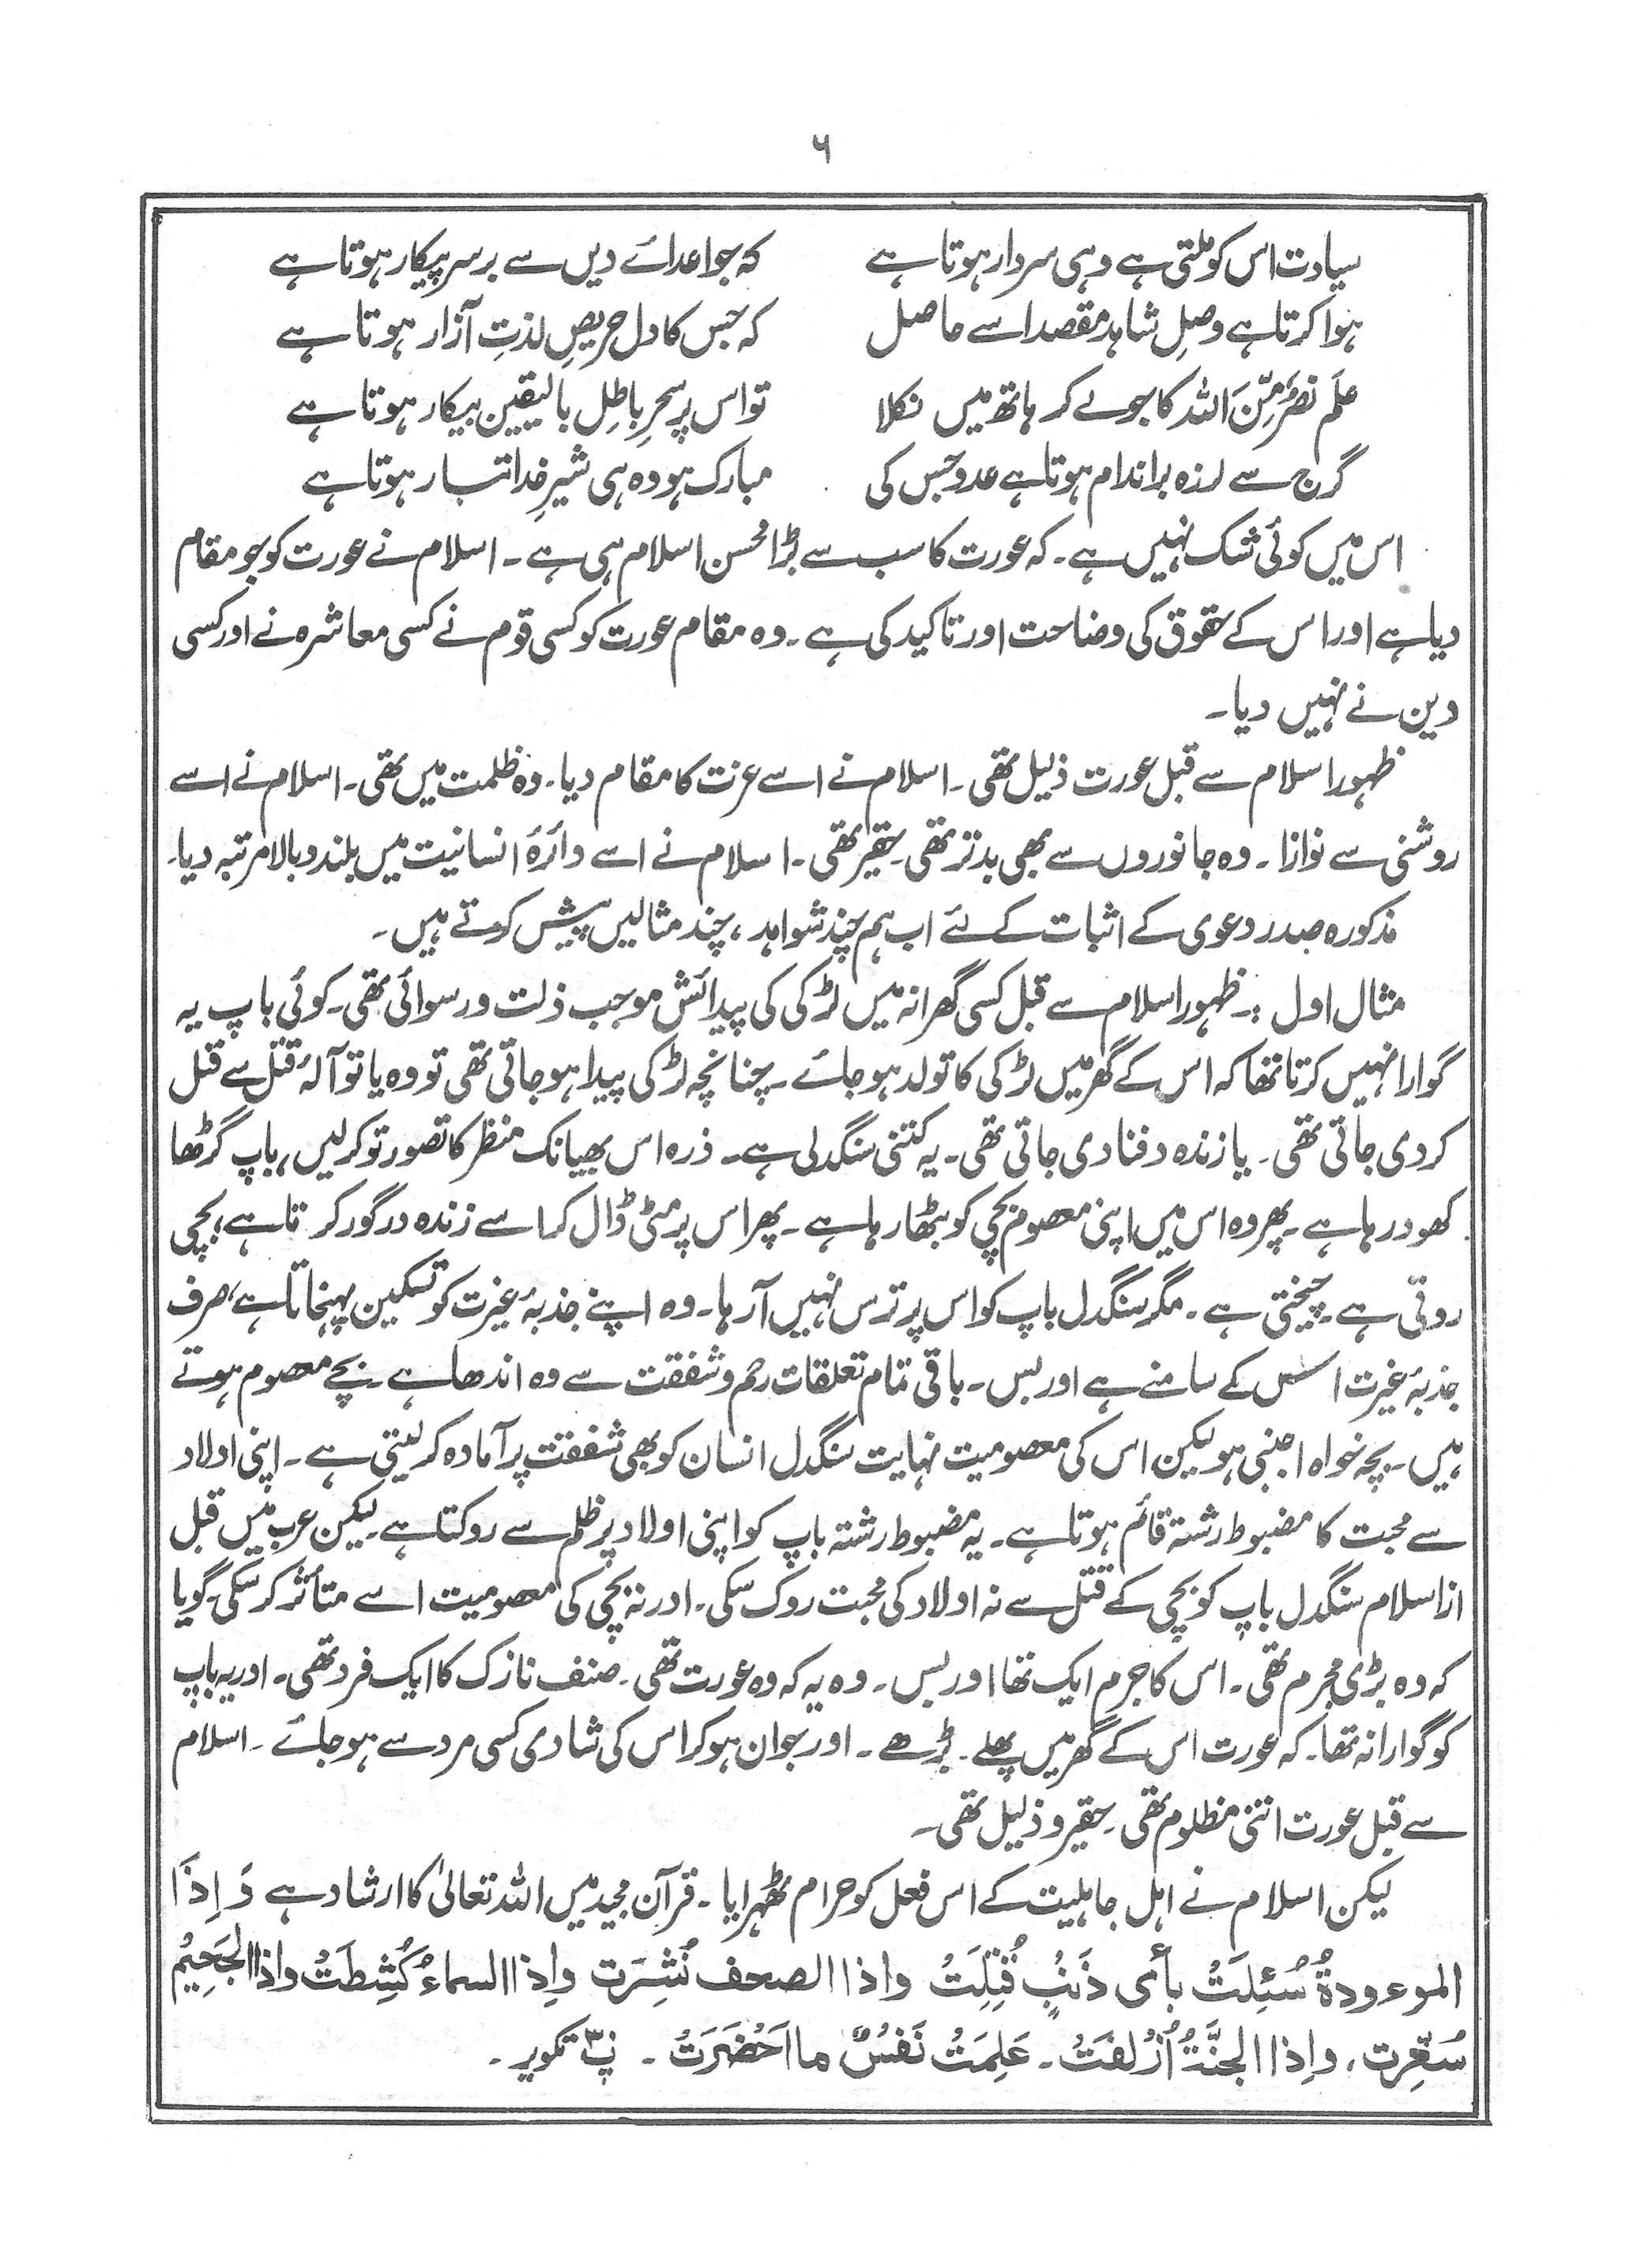 ۶
سیادت اس کو ملتی ہے وہی سردار ہوتا ہے کہ جو اعدائے دیں سے برسرِ پیکار ہوتا ہے
ہوا کرتا ہے وصلِ شاہد مقصد اسے حاصل کہ جس کا دل حریصِ لذتِ آزار ہوتا ہے
علَم نصرٌ مِّنَ اللہ کا جو لے کر ہاتھ میں نکلا تو اس پر سحرِ باطِل بالیقین بیکار ہوتا ہے
گرج سے لرزہ براندام ہوتا ہے عدو جس کی مبارک ہو وہ ہی شیرِ خدا تبار ہوتا ہے
اس میں کوئی شک نہیں ہے۔ کہ عورت کا سب سے بڑا محسن اسلام ہی ہے۔ اسلام نے عورت کو جو مقام
دیا ہے اور اس کے حقوق کی وضاحت اور تاکید کی ہے۔ وہ مقام عورت کو کسی قوم نے کسی معاشرہ نے اور کسی
دین نے نہیں دیا۔
ظہور اسلام سے قبل عورت ذلیل تھی۔ اسلام نے اسے عزت کا مقام دیا۔ وہ ظلمت میں تھی۔ اسلام نے اسے
روشنی سے نوازا۔ وہ جانوروں سے بھی بدتر تھی۔ حقیر تھی۔ اسلام نے اسے دائرۂ انسانیت میں بلند و بالا مرتبہ دیا۔
مذکورہ صدر دعوی کے اثبات کے لئے اب ہم چند شواہد، چند مثالیں پیش کرتے ہیں۔
مثال اول :۔ ظہور اسلام سے قبل کسی گھرانہ میں لڑکی کی پیدائش موجب ذلت و رسوائی تھی۔ کوئی باپ یہ
گوارا نہیں کرتا تھا کہ اس کے گھر میں لڑکی کا تولد ہو جائے۔ چنانچہ لڑکی پیدا ہو جاتی تھی تو وہ یا تو آلۂ قتل سے قتل
کردی جاتی تھی۔ یا زندہ دفنا دی جاتی تھی۔ یہ کتنی سنگدلی ہے۔ ذرہ اس بھیانک منظر کا تصور تو کرلیں، باپ گڑھا
کھود رہا ہے۔ پھر وہ اس میں اپنی معصوم بچی کو بٹھا رہا ہے۔ پھر اس پر مٹی ڈال کر اسے زندہ درگور کرتا ہے، بچی
روتی ہے۔ چیختی ہے۔ مگر سنگدل باپ کو اس پر ترس نہیں آرہا۔ وہ اپنے جذبۂ غیرت کو تسکین پہنچاتا ہے، صرف
جذبۂ غیرت اس کے سامنے ہے اور بس۔ باقی تمام تعلقات رحم و شفقت سے وہ اندھا ہے۔ بچے معصوم ہوتے
ہیں۔ بچہ خواہ اجنبی ہو لیکن اس کی معصومیت نہایت سنگدل انسان کو بھی شفقت پر آمادہ کرلیتی ہے۔ اپنی اولاد
سے محبت کا مضبوط رشتہ قائم ہوتا ہے۔ یہ مضبوط رشتہ باپ کو اپنی اولاد پر ظلم سے روکتا ہے۔ لیکن عرب میں قبل
از اسلام سنگدل باپ کو بچی کے قتل سے نہ اولاد کی محبت روک سکی۔ اور نہ بچی کی معصومیت اسے متأثر کرسکی۔ گویا
کہ وہ بڑی مجرم تھی۔ اس کا جرم ایک تھا اور بس۔ وہ یہ کہ وہ عورت تھی۔ صنف نازک کا ایک فرد تھی۔ اور یہ باپ
کو گوارا نہ تھا۔ کہ عورت اس کے گھر میں پھلے۔ بڑھے۔ اور جوان ہو کر اس کی شادی کسی مرد سے ہو جائے۔ اسلام
سے قبل عورت اتنی مظلوم تھی۔ حقیر و ذلیل تھی۔
لیکن اسلام نے اہل جاہلیت کے اس فعل کو حرام ٹھہرایا۔ قرآن مجید میں اللہ تعالیٰ کا ارشاد ہے وَ اِذَا
الموءودةُ سُئِلَتْ بأی ذَنبٍ قُتِلَتْ واذا الصحف نُشِرَت واِذا السماءُ كُشِطَتْ واذا الجَحِيْمُ
سُعِّرت، واِذا الجنَّةُ اُزْلفَتْ۔ عَلِمَتْ نَفسٌ ما اَحْضَرَتْ ۔ پ۳۰ تکویر۔